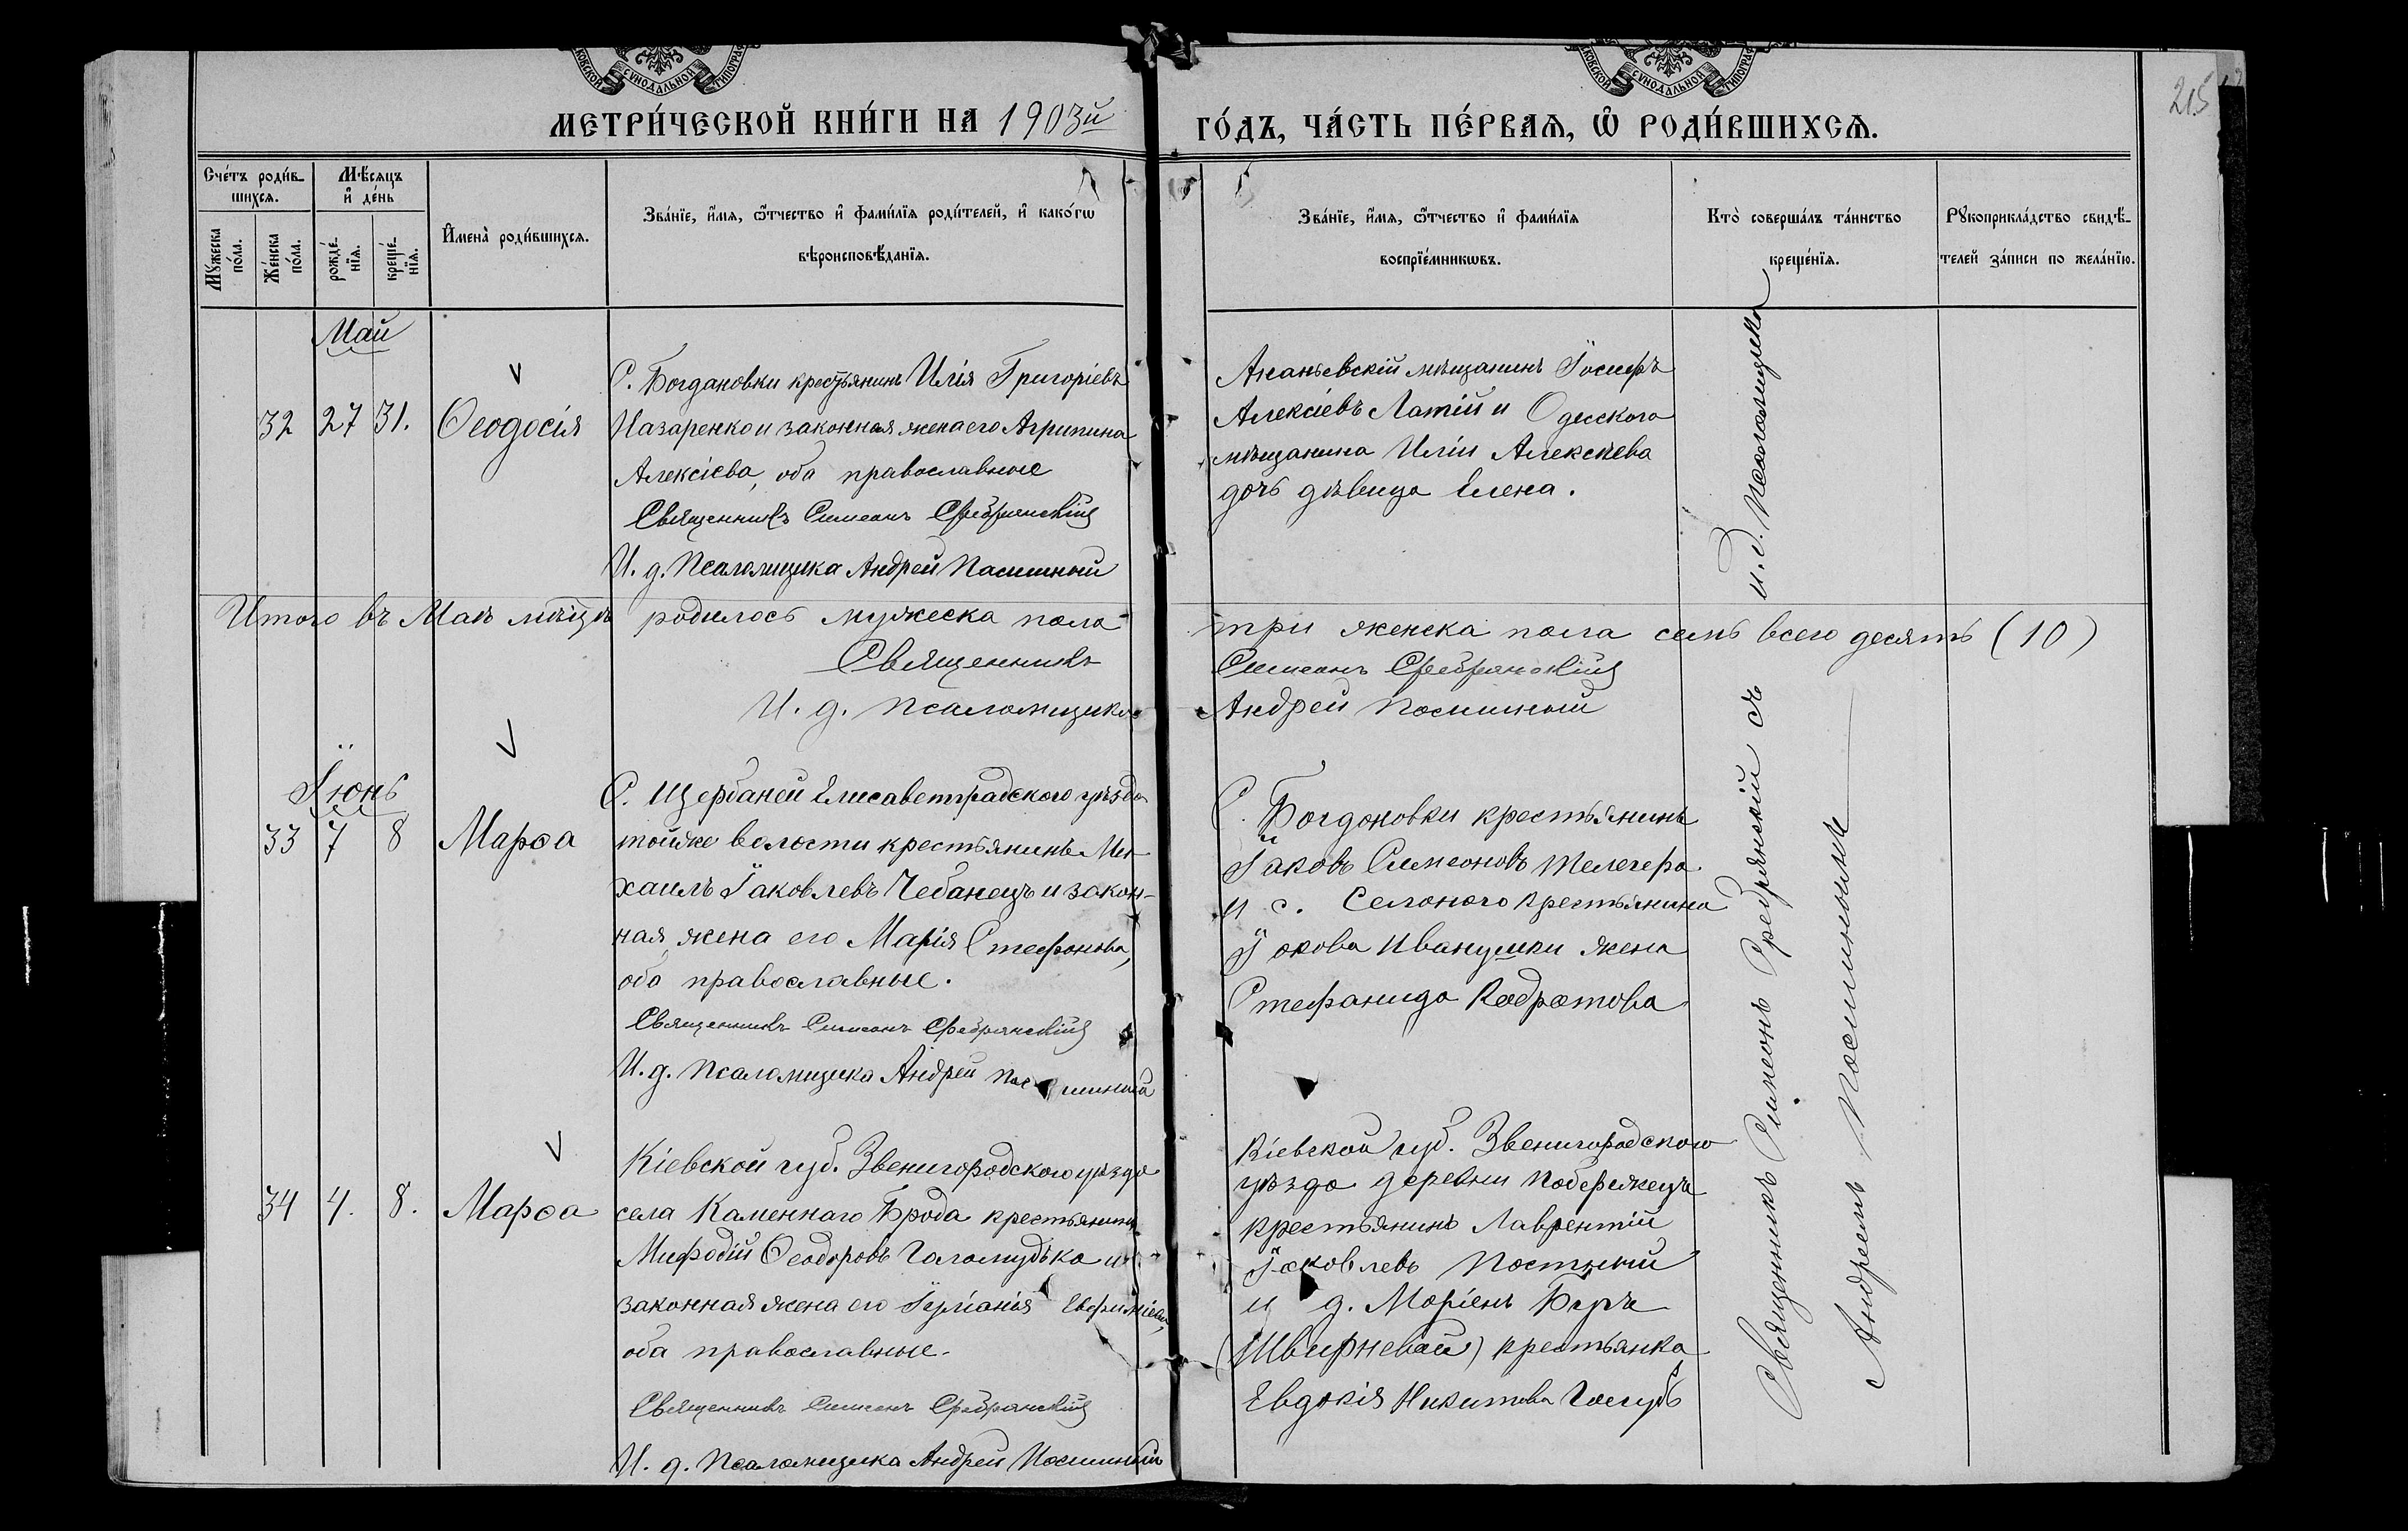 МЕТРИ́ЧЕСКОЙ КНИ́ГИ НА 1903й
ГО́ДЪ, ЧА́СТЬ ПЕ́РВАѦ, Ѡ҆ РОДИ́ВШИХСѦ.
215
Сче́тъ роди́в-
шихсѧ.
Мѣ́сяцъ
и҆ де́нь
Мꙋ́жеска
по́ла.
Же́нска
по́ла.
рожде́-
нїѧ.
креще́-
нїѧ.
И҆мена̀ роди́вшихсѧ.
Зва́нїе, и҆́мѧ, ѻ҆́тчество и҆ фами́лїѧ роди́телей, и҆ како́гѡ
вѣроисповѣ́данїѧ.
Зва́нїе, и҆́мѧ, ѻ҆́тчество и҆ фами́лїѧ
воспрїе́мникѡвъ.
Кто̀ соверша́лъ та́инство
креще́нїѧ.
Рꙋкоприкла́дство свидѣ́-
телей за́писи по жела́нїю.
Май
32 27 31. Ѳеодосія
С. Богдановки крестьянинъ Илія Григоріевъ
Назаренко и законная жена его Агрипина
Алексіева, оба православные
Священникъ Симеонъ Сребрянскій
И. д. Псаломщика Андрей
Ананьевскій мѣщанинъ Іосифъ
Алексіевъ Латій и Одесского
мѣщанина Иліи Алексѣева
дочь дѣвица Елена.
Итого въ Маѣ мѣсцѣ родилось мужеска пола три женска пола семь всего десять (10)
Священникъ Симеонъ Сребрянскій
И. д. псаломщика Андрей
Іюнь
33 7 8 Марѳа
С. Щербаней Елисаветградского уѣзда
тойже волости крестьянинъ Ми-
хаилъ Іаковлевъ Чебанецъ и закон-
ная жена его Марія Стефанова,
оба православные.
Священникъ Симеонъ Сребрянскій
И. д. Псаломщика Андрей
С. Богдановки крестьянинъ
Іаковъ Симеоновъ Телегера
и с. крестьянина
Іакова Иванушки жена
Стефанида
34 4. 8. Марѳа
Кіевской губ. Звенигородского уѣзда
села Каменнаго Брода крестьянинъ
Мифодій Ѳеодоровъ и
законная жена его Іуліанія Евфиміева,
оба православные.
Священникъ Симеонъ Сребрянскій
И. д. Псаломщика Андрей
Кіевской губ. Звенигородского
уѣзда деревни Побережецъ
крестьянинъ Лаврентій
Іаковлевъ Постный
и д. Маріенъ Бергъ
(Швирневой) крестьянка
Евдокія Никитова Голубъ
Священникъ Симеонъ Сребрянскій съ и. д. Псаломщика
Андреемъ